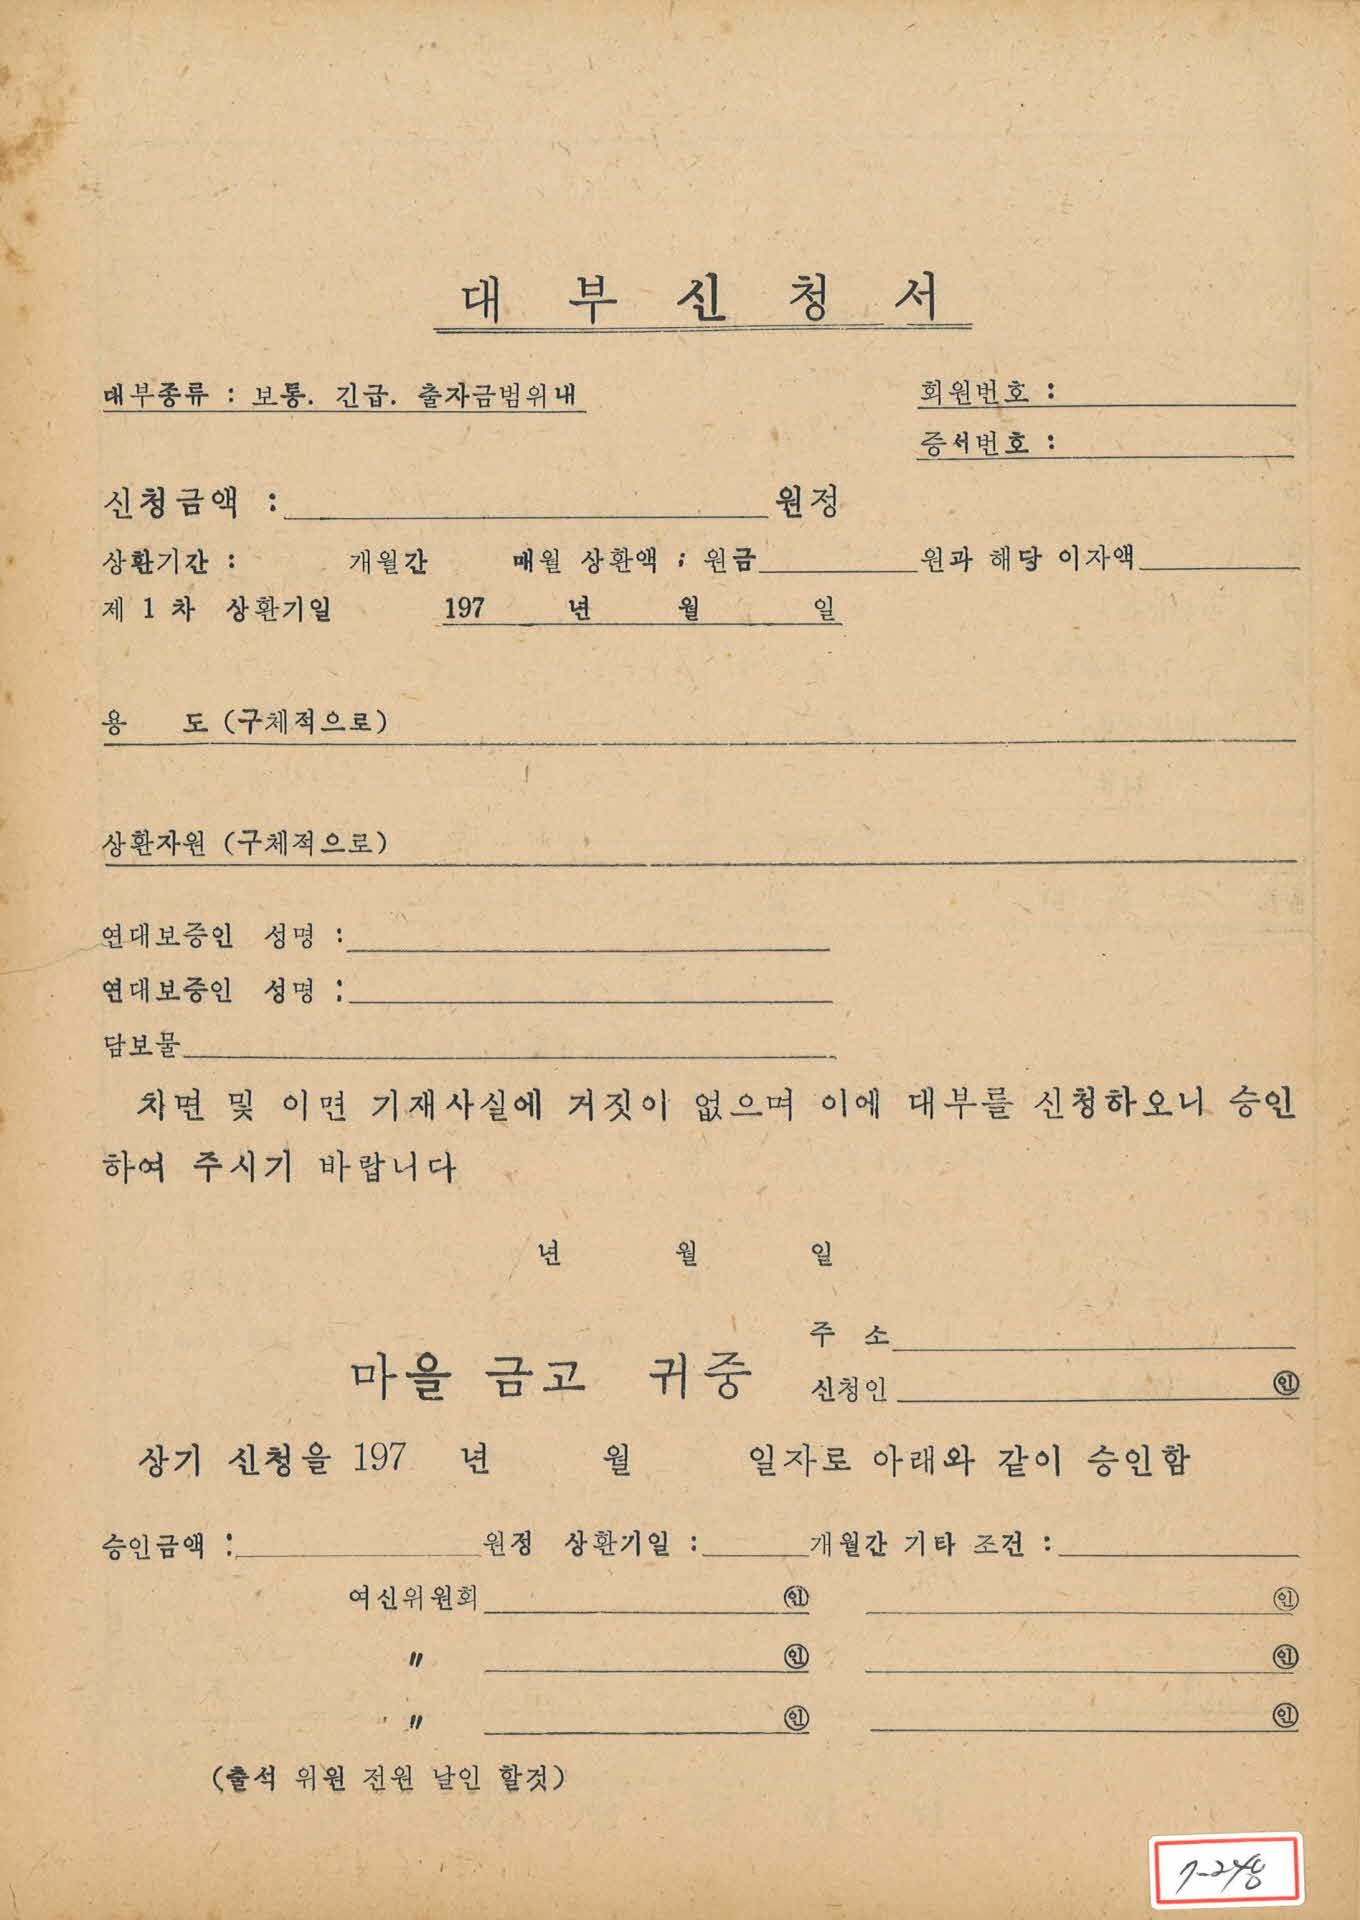 대 부 신 청 서
대부종류 : 보통. 긴급. 출자금범위내 회원번호 :
증서번호 :
신청금액 : 원정
상환기간 : 개월간 매월 상환액 ; 원금 원과 해당 이자액
제 1 차 상환기일 197 년 월 일
용 도 (구체적으로)
상환자원 (구체적으로)
연대보증인 성명 :
연대보증인 성명 :
담보물
차면 및 이면 기재사실에 거짓이 없으며 이에 대부를 신청하오니 승인
하여 주시기 바랍니다
년 월 일
주 소
마을 금고 귀중 신청인 ㊞
상기 신청을 197 년 월 일자로 아래와 같이 승인함
승인금액 : 원정 상환기일 : 개월간 기타 조건 :
여신위원회 ㊞ ㊞
〃 ㊞ ㊞
〃 ㊞ ㊞
(출석 위원 전원 날인 할것)
7-248